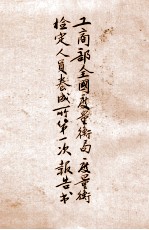 工商部全國度量衡局度量衡
檢定人員養成所第一次報告書